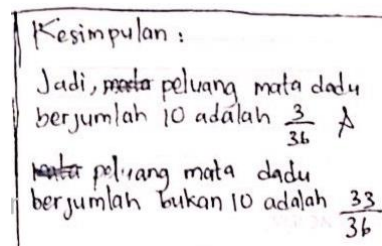 Kesimpulan :
Jadi, peluang mata dadu
berjumlah 10 adalah 3/36
peluang mata dadu
berjumlah bukan 10 adalah 33/36